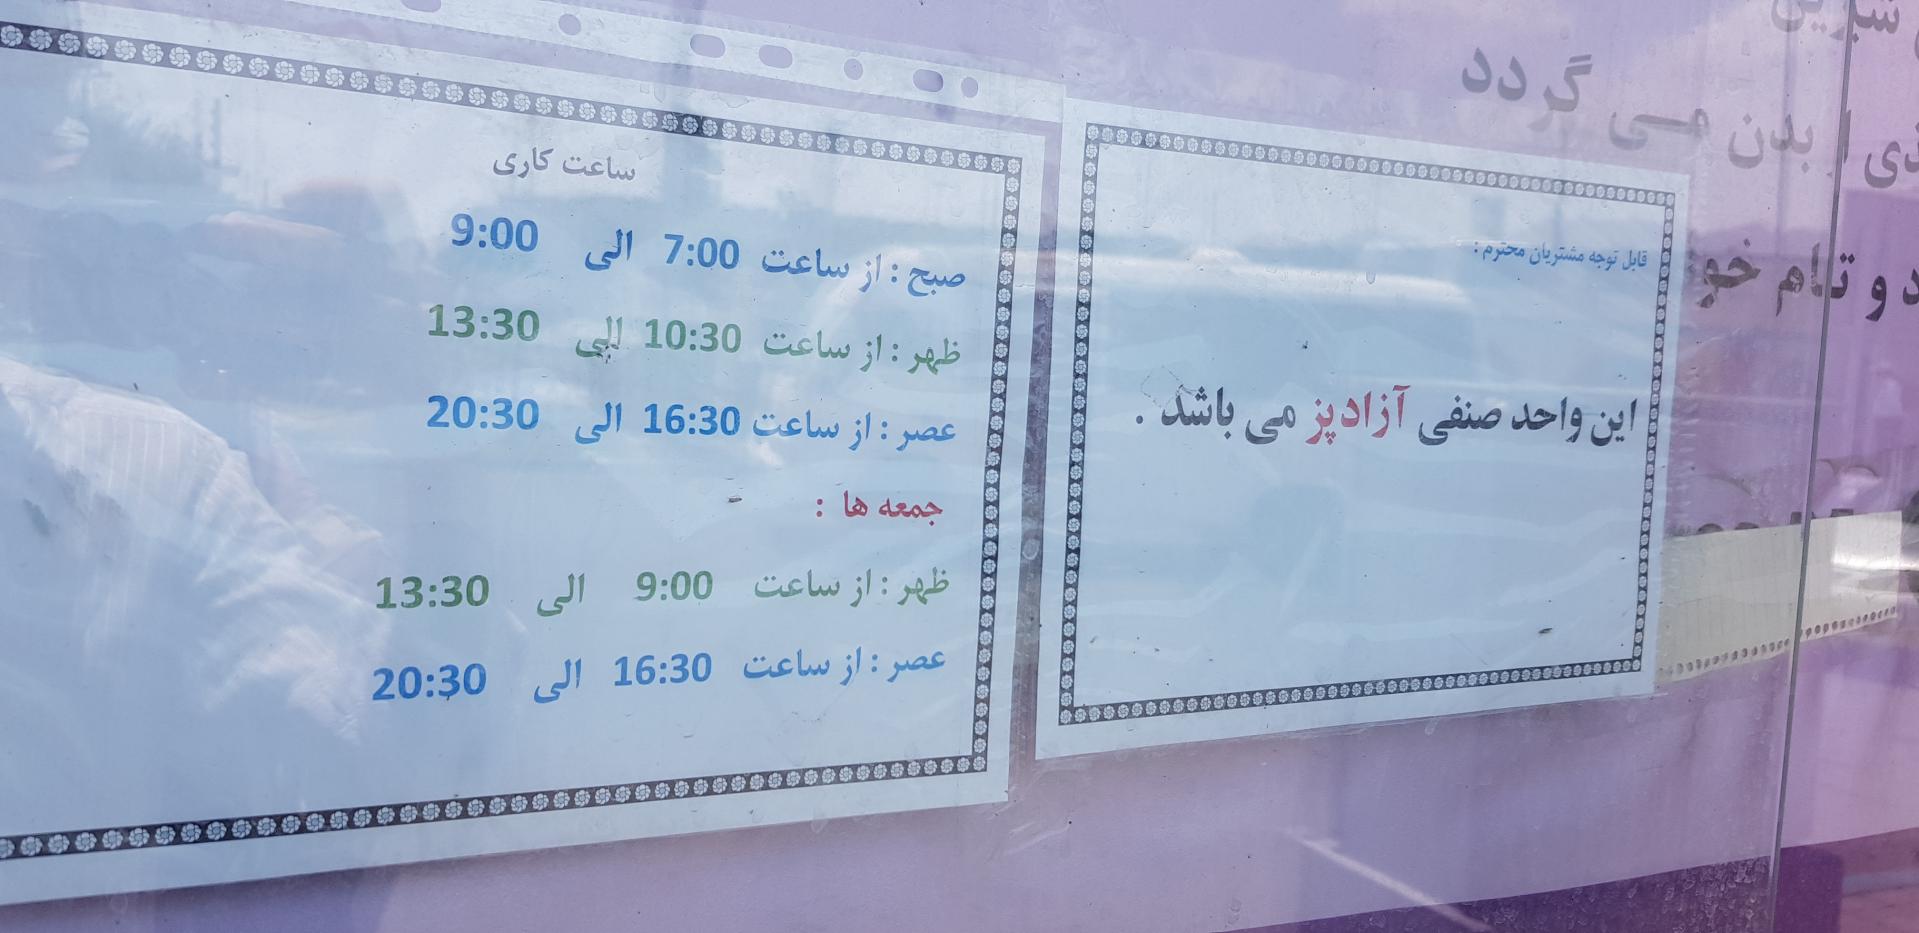 قابل توجه مشتریان محترم :
این واحد صنفی آزادپز می باشد .
ساعت کاری
صبح : از ساعت 7:00 الی 9:00
ظهر : از ساعت 10:30 الی 13:30
عصر : از ساعت 16:30 الی 20:30
جمعه ها :
ظهر : از ساعت 9:00 الی 13:30
عصر : از ساعت 16:30 الی 20:30
شیرین
بدن می گردد